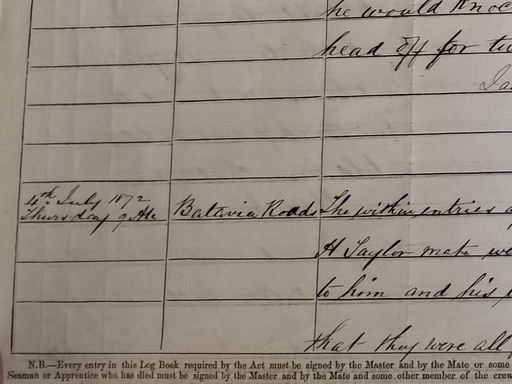 he would knoc
head off for tw
4th July 1872
Thursday 9 AM Batavia Roads The within entries
H Taylor mate we
to him and his
that they were all
N.B.—Every entry in this Log Book required by the Act must be signed by the Master and by the Mate or some
Seaman or Apprentice who has died must be signed by the Master and by the Mate and some other member of the crew